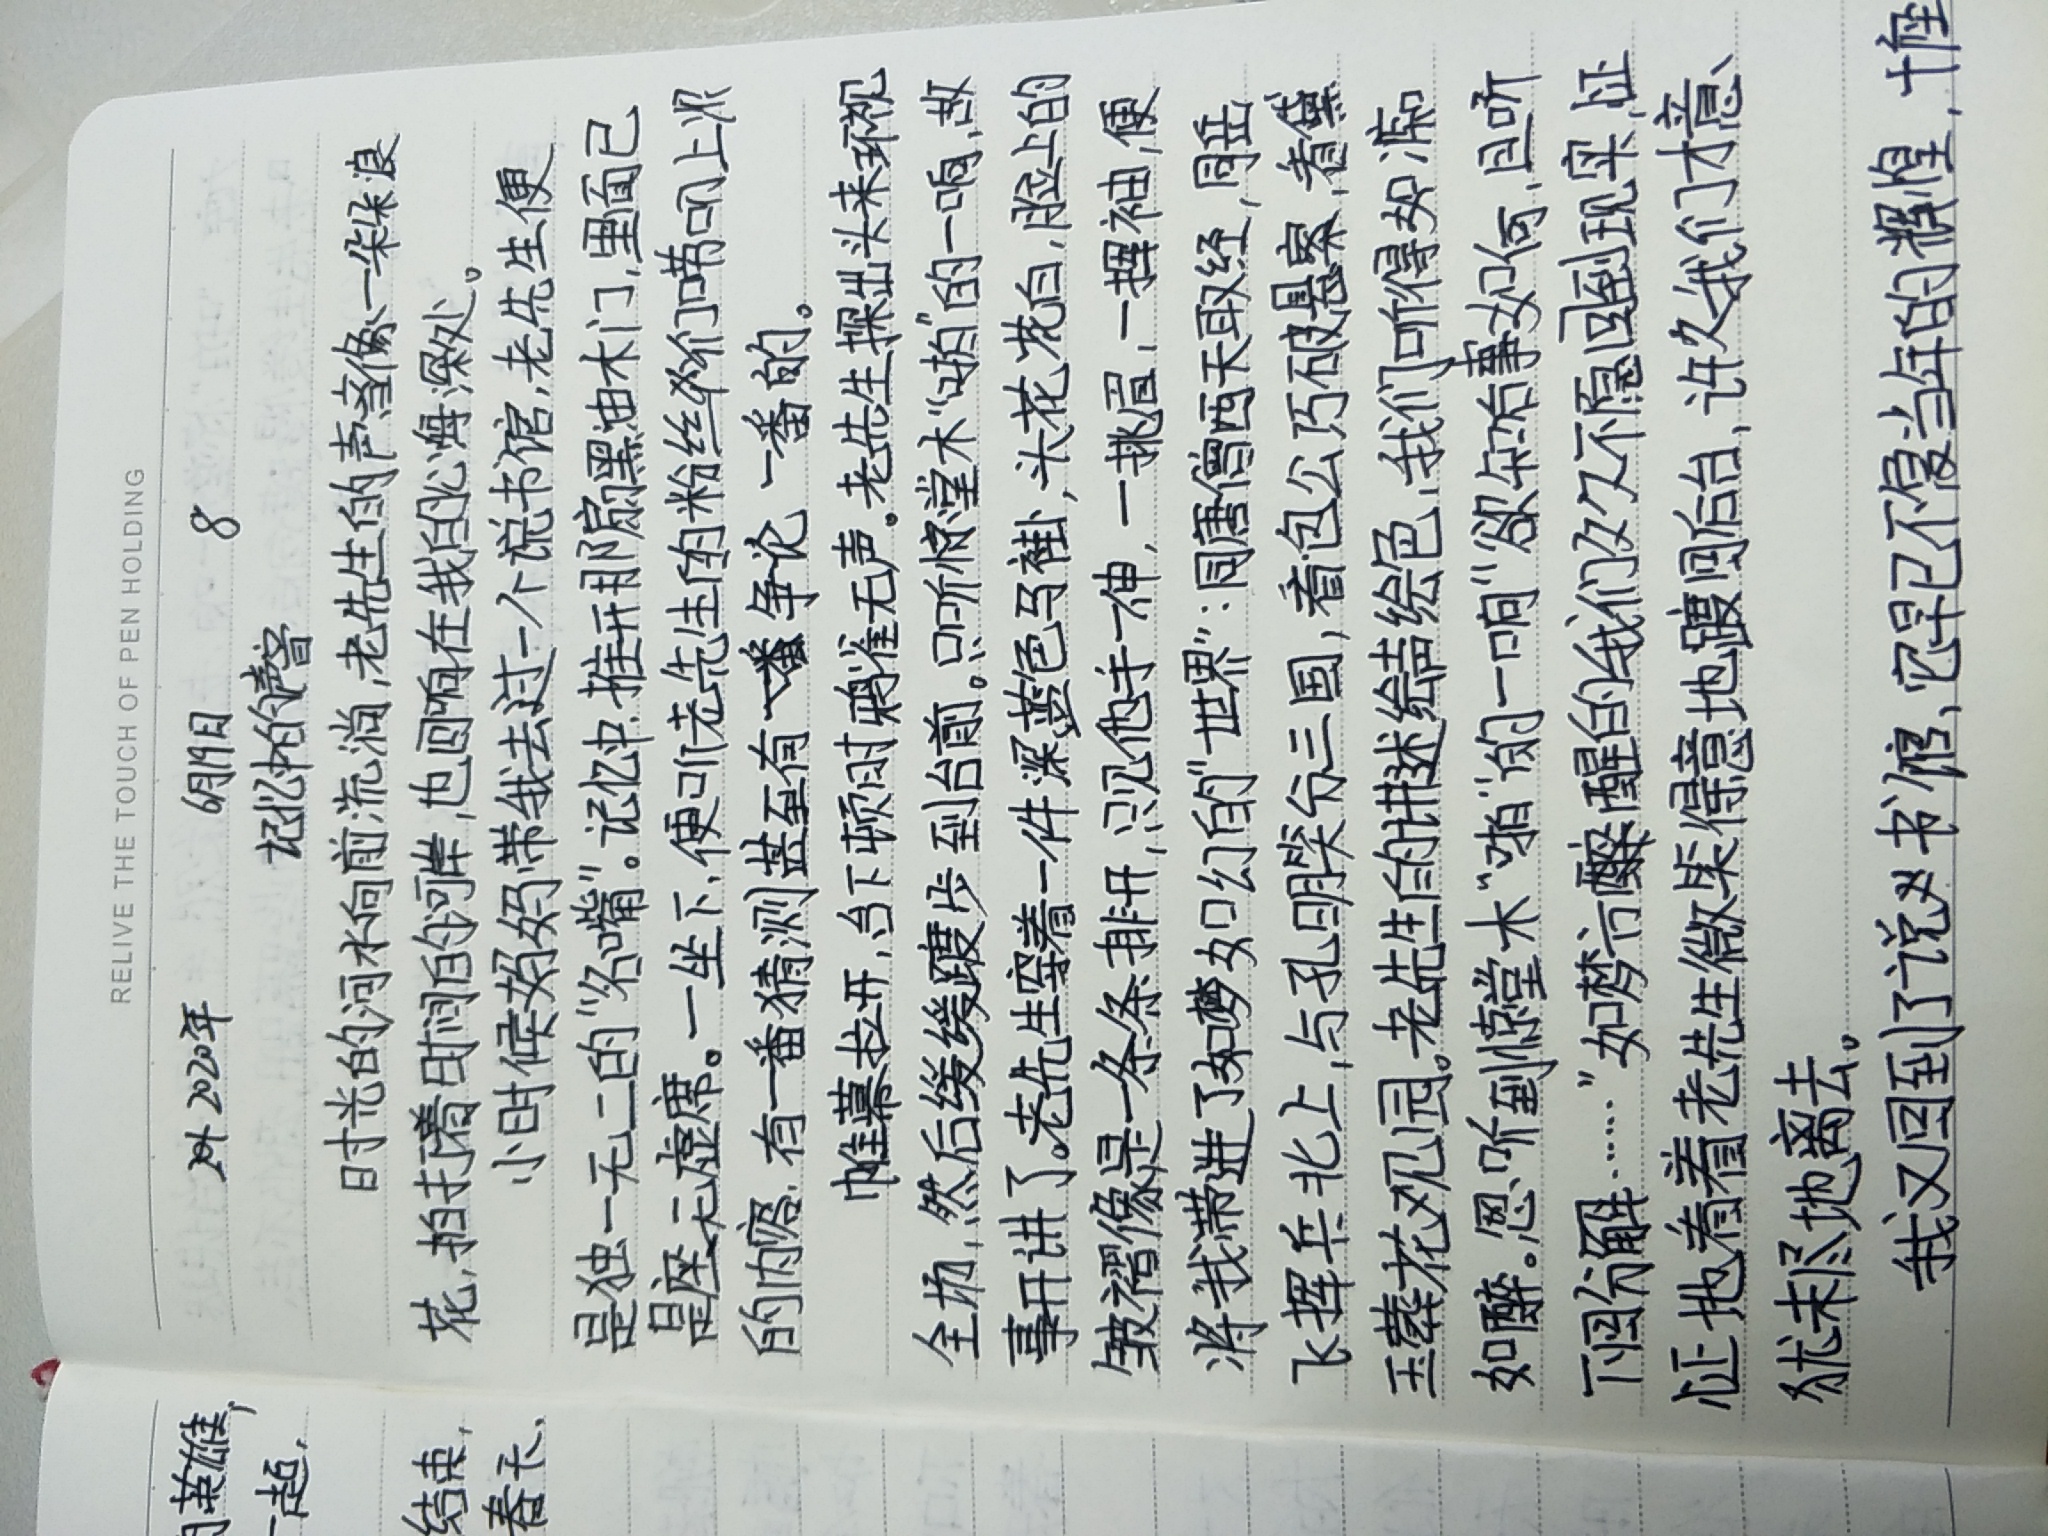 RELIVE THE TOUCH OF PEN HOLDING
2020年 6月19日 8
记忆中的声音
时光的河水向前流淌,老先生的声音像一朵浪
花,拍打着时间的河岸,也回响在我的心海深处。
小时候妈妈带我去过一个说书馆,老先生便
是独一无二的“名嘴”。记忆中,推开那扇黑油木门,里面已
是座无虚席。一坐下,便听老先生的粉丝们嘀咕上次
的内容,有一番猜测甚至有一番争论一番的。
帷幕拉开,台下顿时鸦雀无声。老先生探出头来环视
全场,然后缓缓踱步到台前。只听惊堂木“啪”的一响,故
事开讲了。老先生穿着一件深蓝色马褂,头花花白,脸上的
皱褶像是一条条排开,只见他手一伸,一挑眉,一挥袖,便
将我带进了如梦如幻的“世界”:同唐僧西天取经,同岳
飞挥兵北上,与孔明哭分三国,看包公巧破悬案,看黛
玉葬花观园。老先生的讲述绘声绘色,我们听得如痴
如醉。忽听到惊堂木“啪”的一响“欲知后事如何,且听
下回分解……”如梦方醒的我们久久不愿回到现实,怔
怔地看着老先生微笑得意地踱回后台,许久我们才意
犹未尽地离去。
我又回到了说书馆,它早已不复当年的辉煌,十座
的英雄,
一超,
结束,
春天,